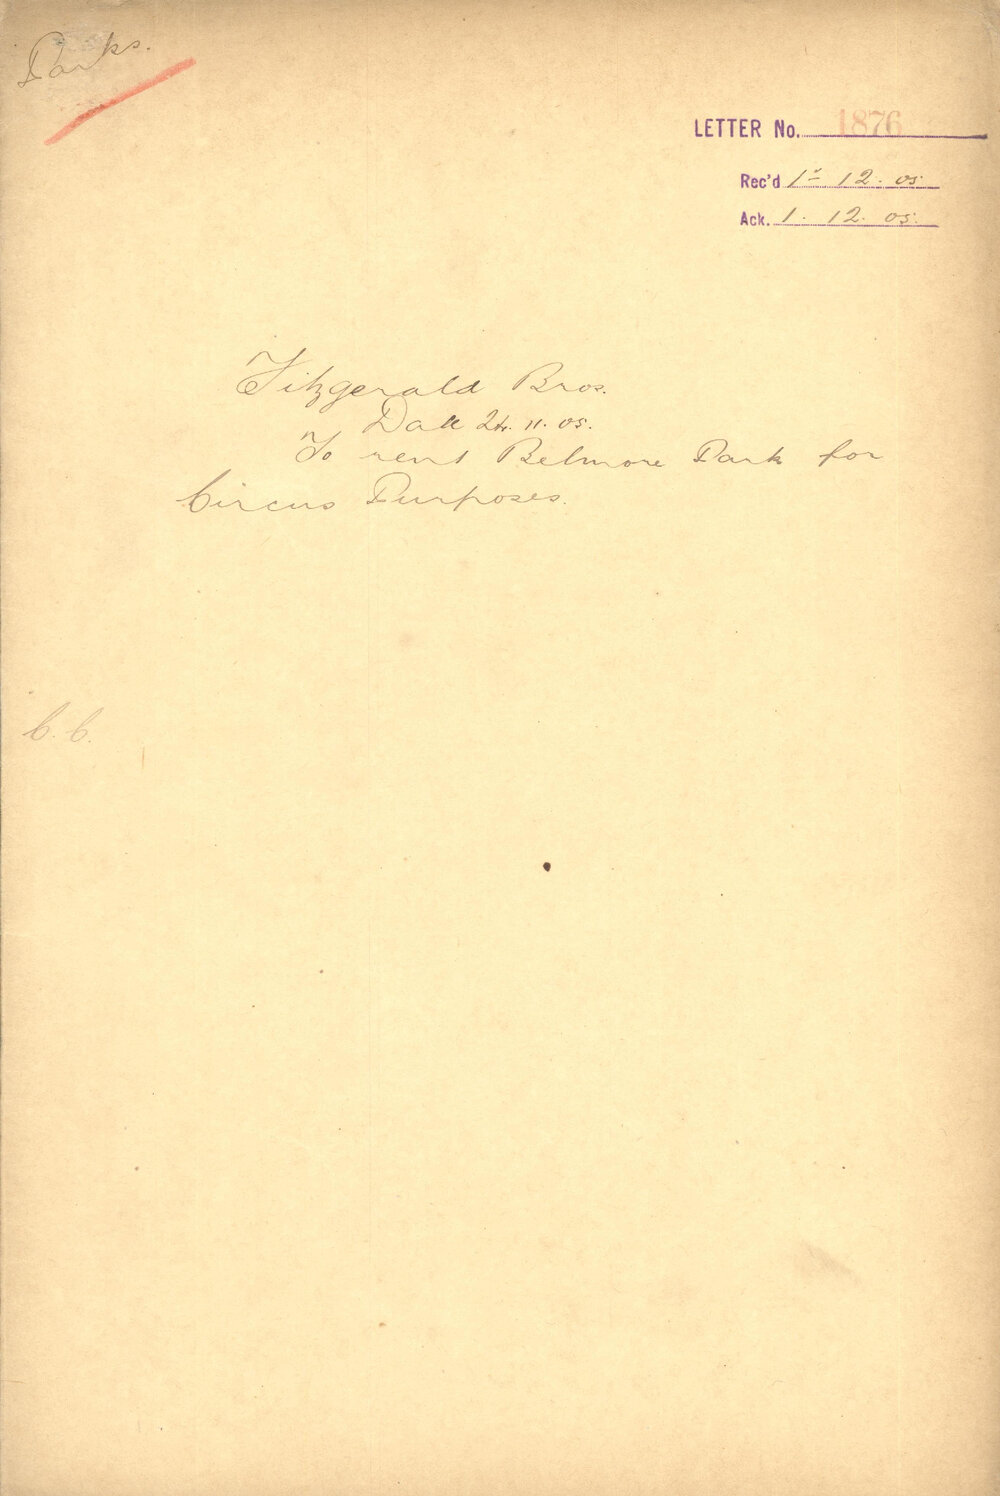 Parks.
LETTER No. 1876
Rec'd 1st 12. 05.
Ack. 1. 12. 05.
Fitzgerald Bros.
Date 24. 11. 05.
To rent Belmore Park for
Circus Purposes.
C. C.